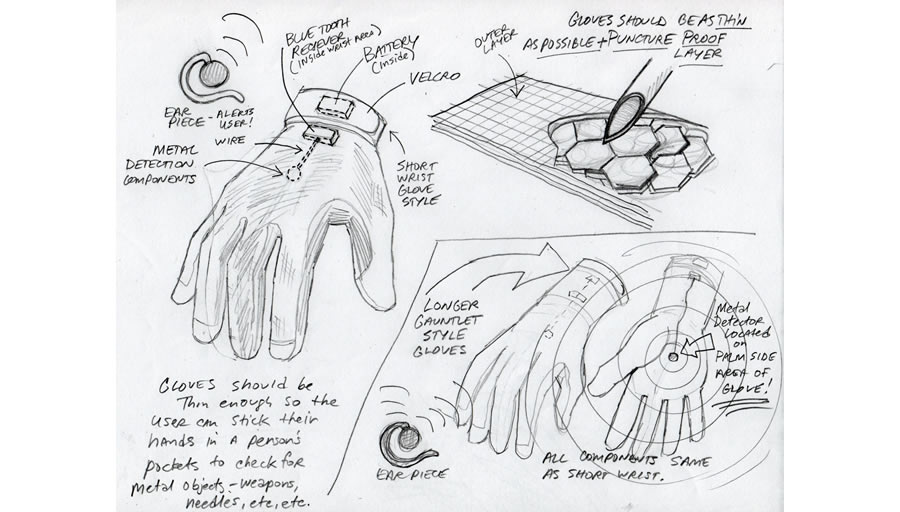 BLUE TOOTH
RECIEVER
(INSIDE WRIST AREA)
BATTERY
(INSIDE)
VELCRO
EAR
PIECE - ALERTS
USER!
WIRE
METAL
DETECTION
COMPONENTS
SHORT
WRIST
GLOVE
STYLE
GLOVES SHOULD BE AS THIN
AS POSSIBLE + PUNCTURE PROOF
LAYER
OUTER
LAYER
GLOVES should be
Thin enough so the
user can stick their
hands in a person's
pockets to check for
metal objects - weapons,
needles, etc, etc.
LONGER
GAUNTLET
STYLE
GLOVES
EAR PIECE
Metal
Detector
Located
on
PALM SIDE
AREA OF
GLOVE!
ALL COMPONENTS SAME
AS SHORT WRIST.